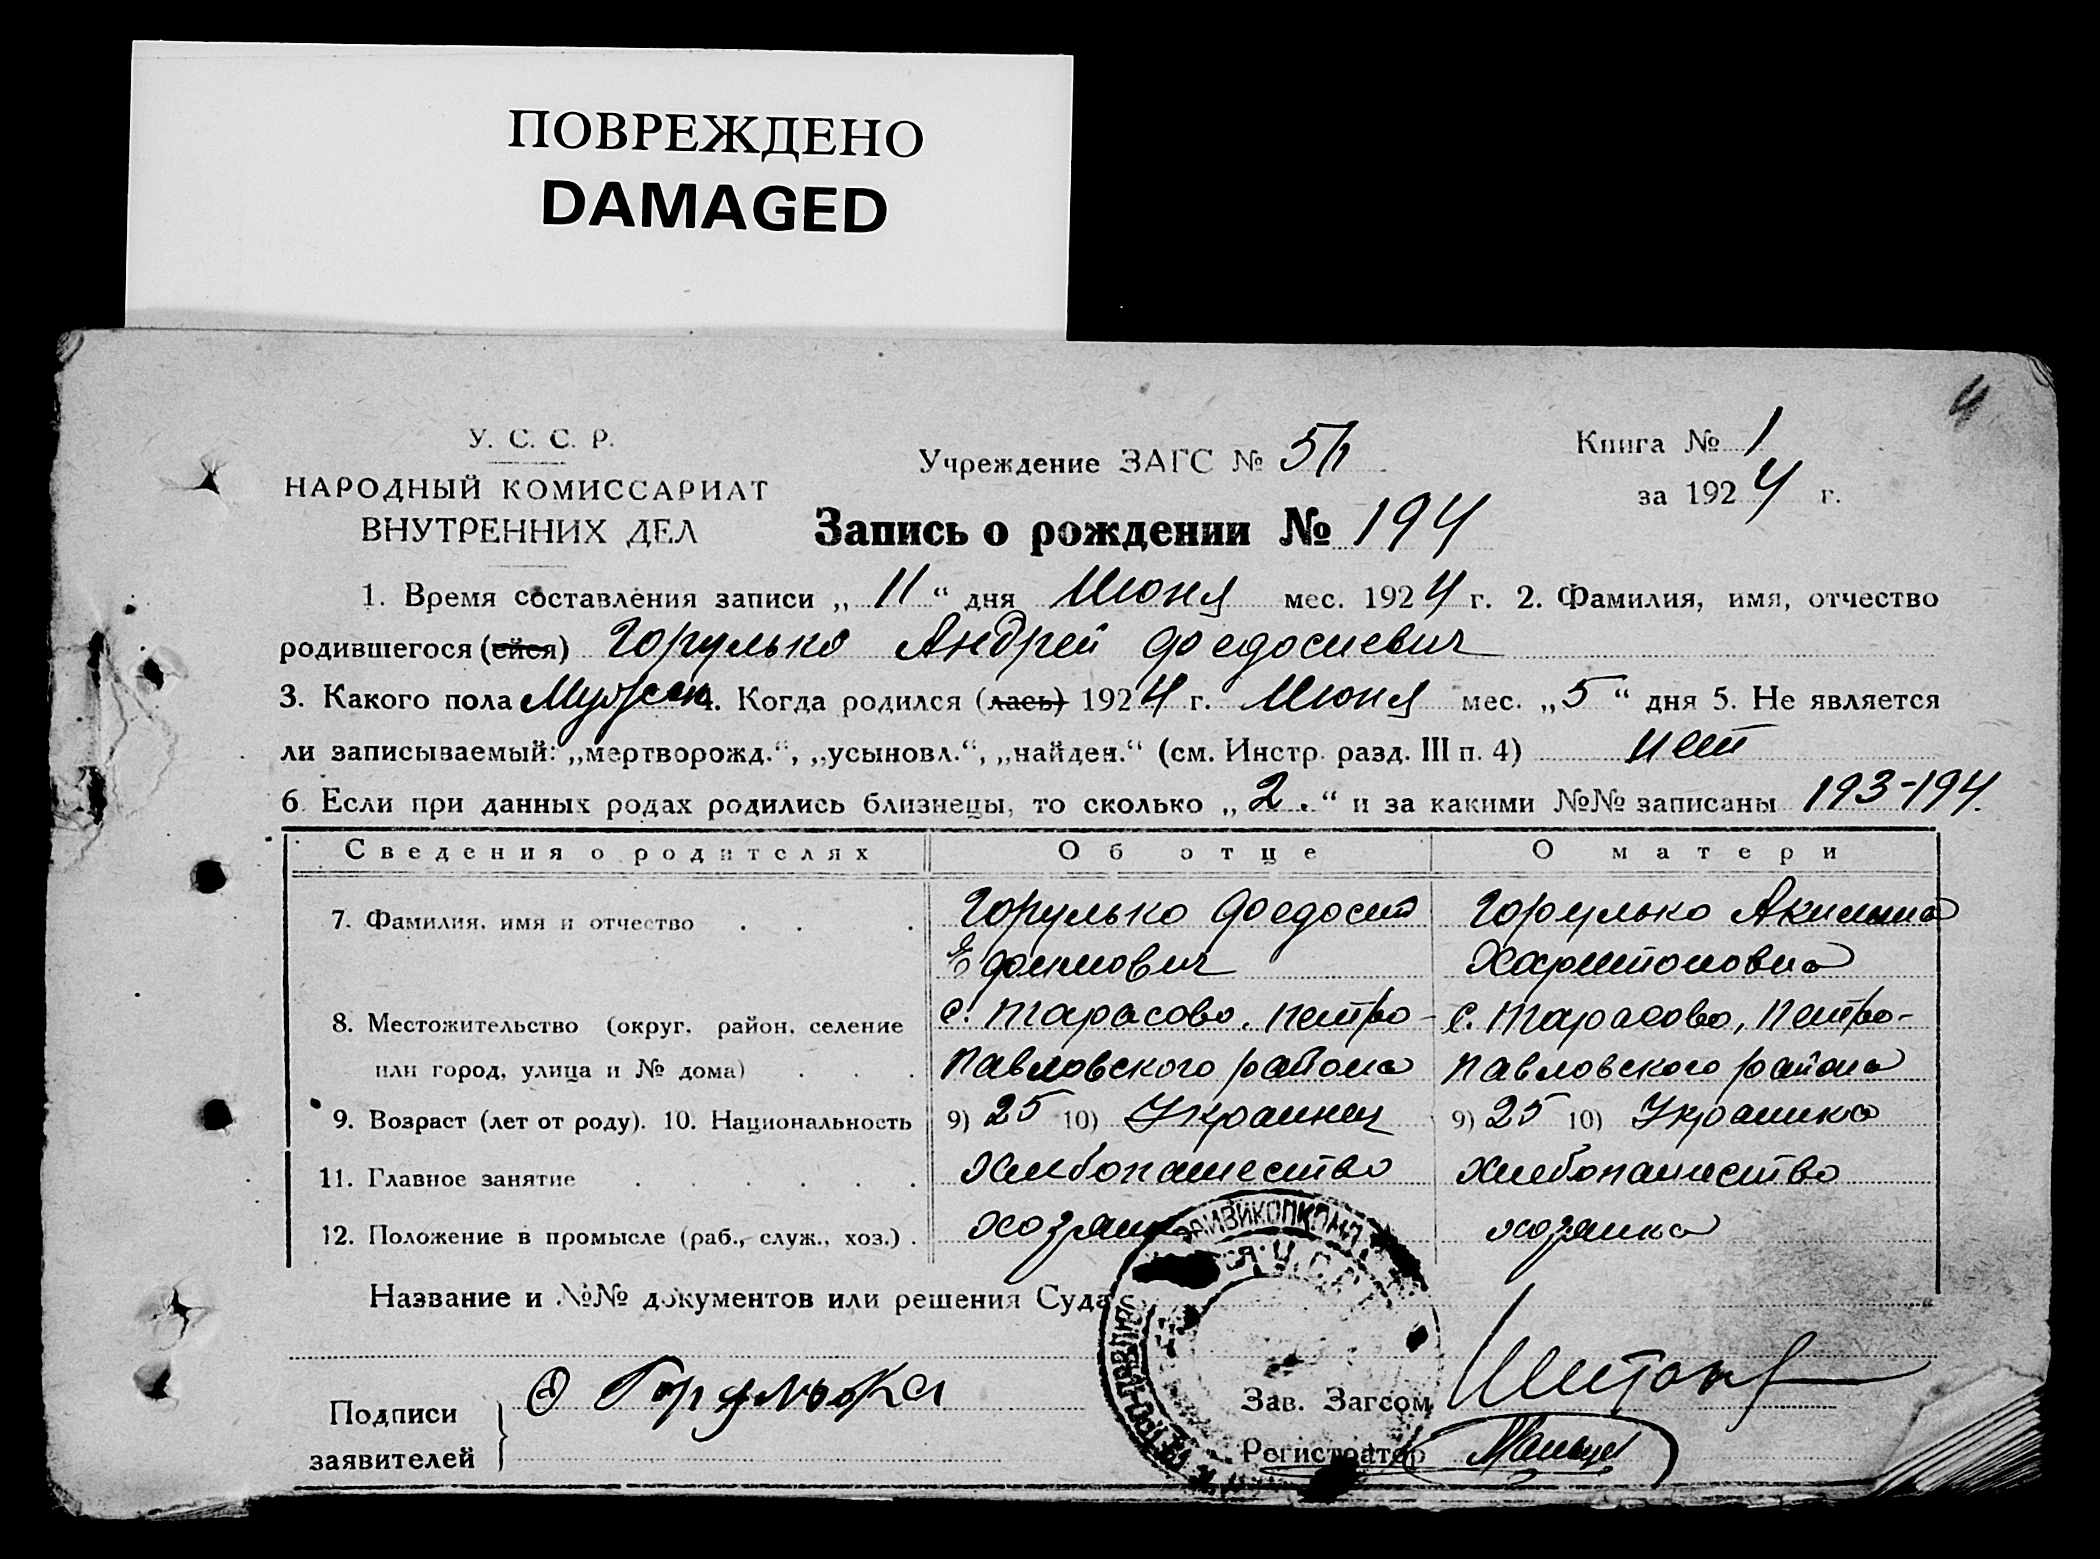 ПОВРЕЖДЕНО
DAMAGED
4
У. С. С. Р.
НАРОДНЫЙ КОМИССАРИАТ
ВНУТРЕННИХ ДЕЛ
Учреждение ЗАГС №
Книга № 1
за 1924 г.
Запись о рождении № 194
1. Время составления записи „ 11 “ дня Июня мес. 1924 г. 2. Фамилия, имя, отчество
родившегося (ейся) Горулько Андрей Фоедосиевич
3. Какого пола Мужск 4. Когда родился (лась) 1924 г. Июня мес. „ 5 “ дня 5. Не является
ли записываемый: „мертворожд.“, „усыновл.“, „найден.“ (см. Инстр. разд. III п. 4) нет
6 Если при данных родах родились близнецы, то сколько „ 2. “ и за какими №№ записаны 193-194.
Сведения о родителях Об отце О матери
7. Фамилия, имя и отчество Горулько Фоедосий Ефимович Горулько Акилина Харитоновна
8. Местожительство (округ, район, селение или город, улица и № дома) с. Тарасово, Петро-Павловского района с. Тарасово, Петро-Павловского района
9. Возраст (лет от роду). 10. Национальность 9) 25 10) Украинец 9) 25 10) Украинка
11. Главное занятие Хлебопашество Хлебопашество
12. Положение в промысле (раб., служ., хоз.) хозяин хозяйка
Название и №№ документов или решения Суда
Подписи заявителей Горулько
Зав. Загсом
Регистратор